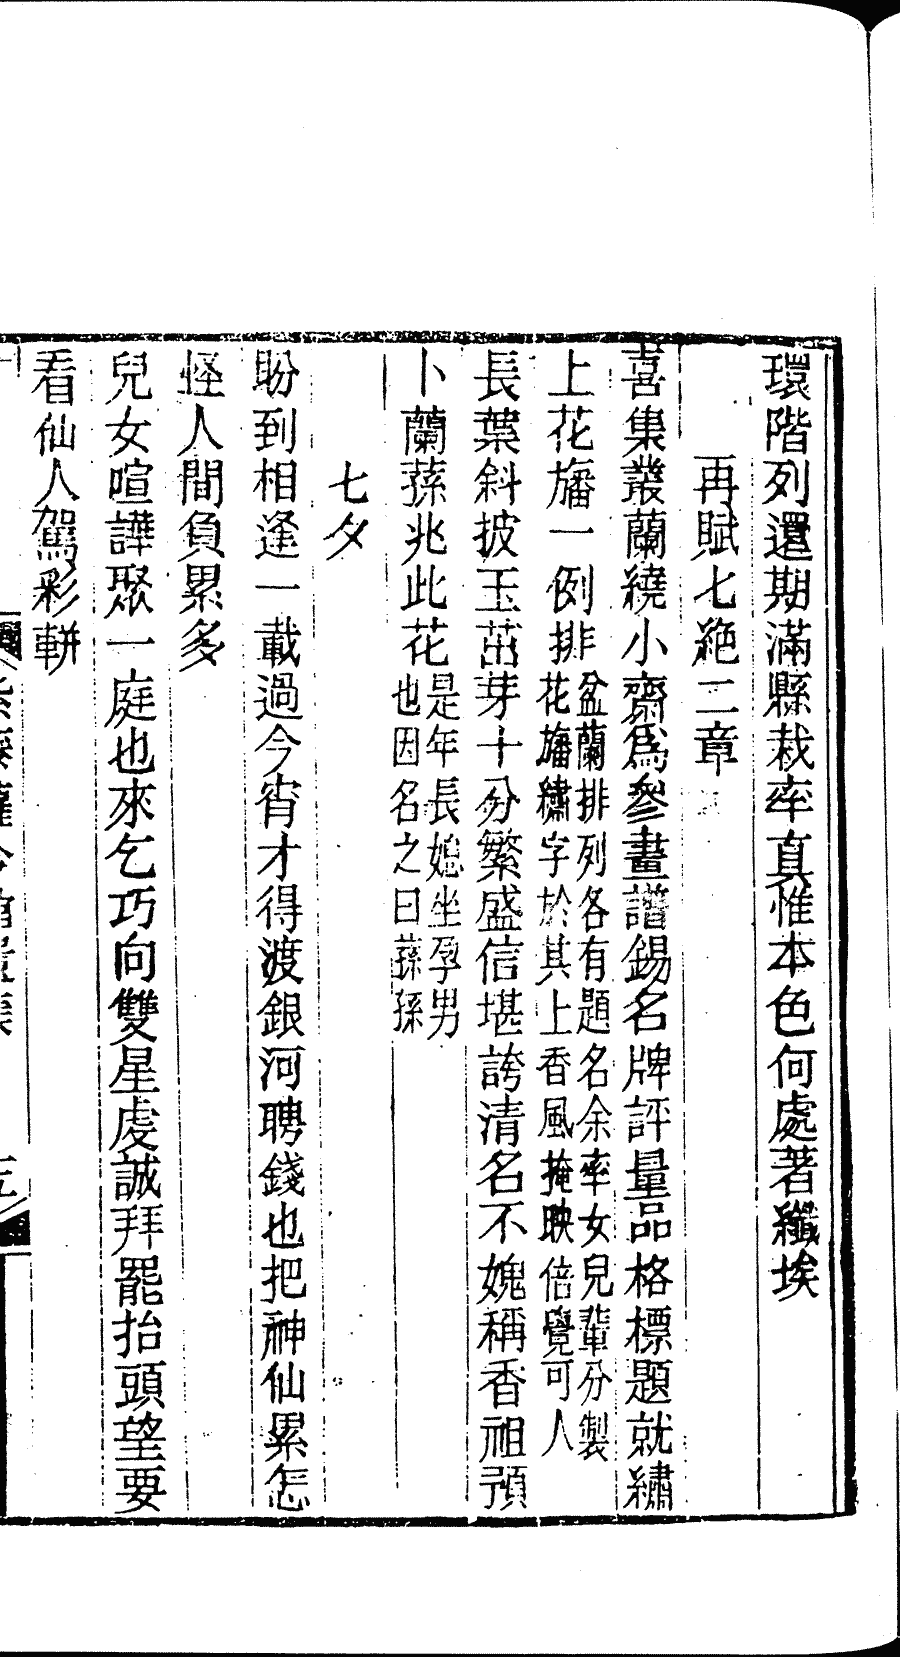 環階列還期滿縣栽率真惟本色何處著纖埃
再賦七絶二章
喜集叢蘭繞小齋為參畫譜錫名牌評量品格標題就繡
上花旛一例排盆蘭排列各有題名余率女兒輩分製
花旛繡字於其上香風掩映倍覺可人
長葉斜披玉茁芽十分繁盛信堪誇清名不媿稱香祖預
卜蘭蓀兆此花是年長媳坐孕男
也因名之曰蓀孫
七夕
盼到相逢一載過今宵才得渡銀河聘錢也把神仙累怎
怪人間負累多
兒女喧譁聚一庭也來乞巧向雙星虔誠拜罷抬頭望要
看仙人駕彩輧